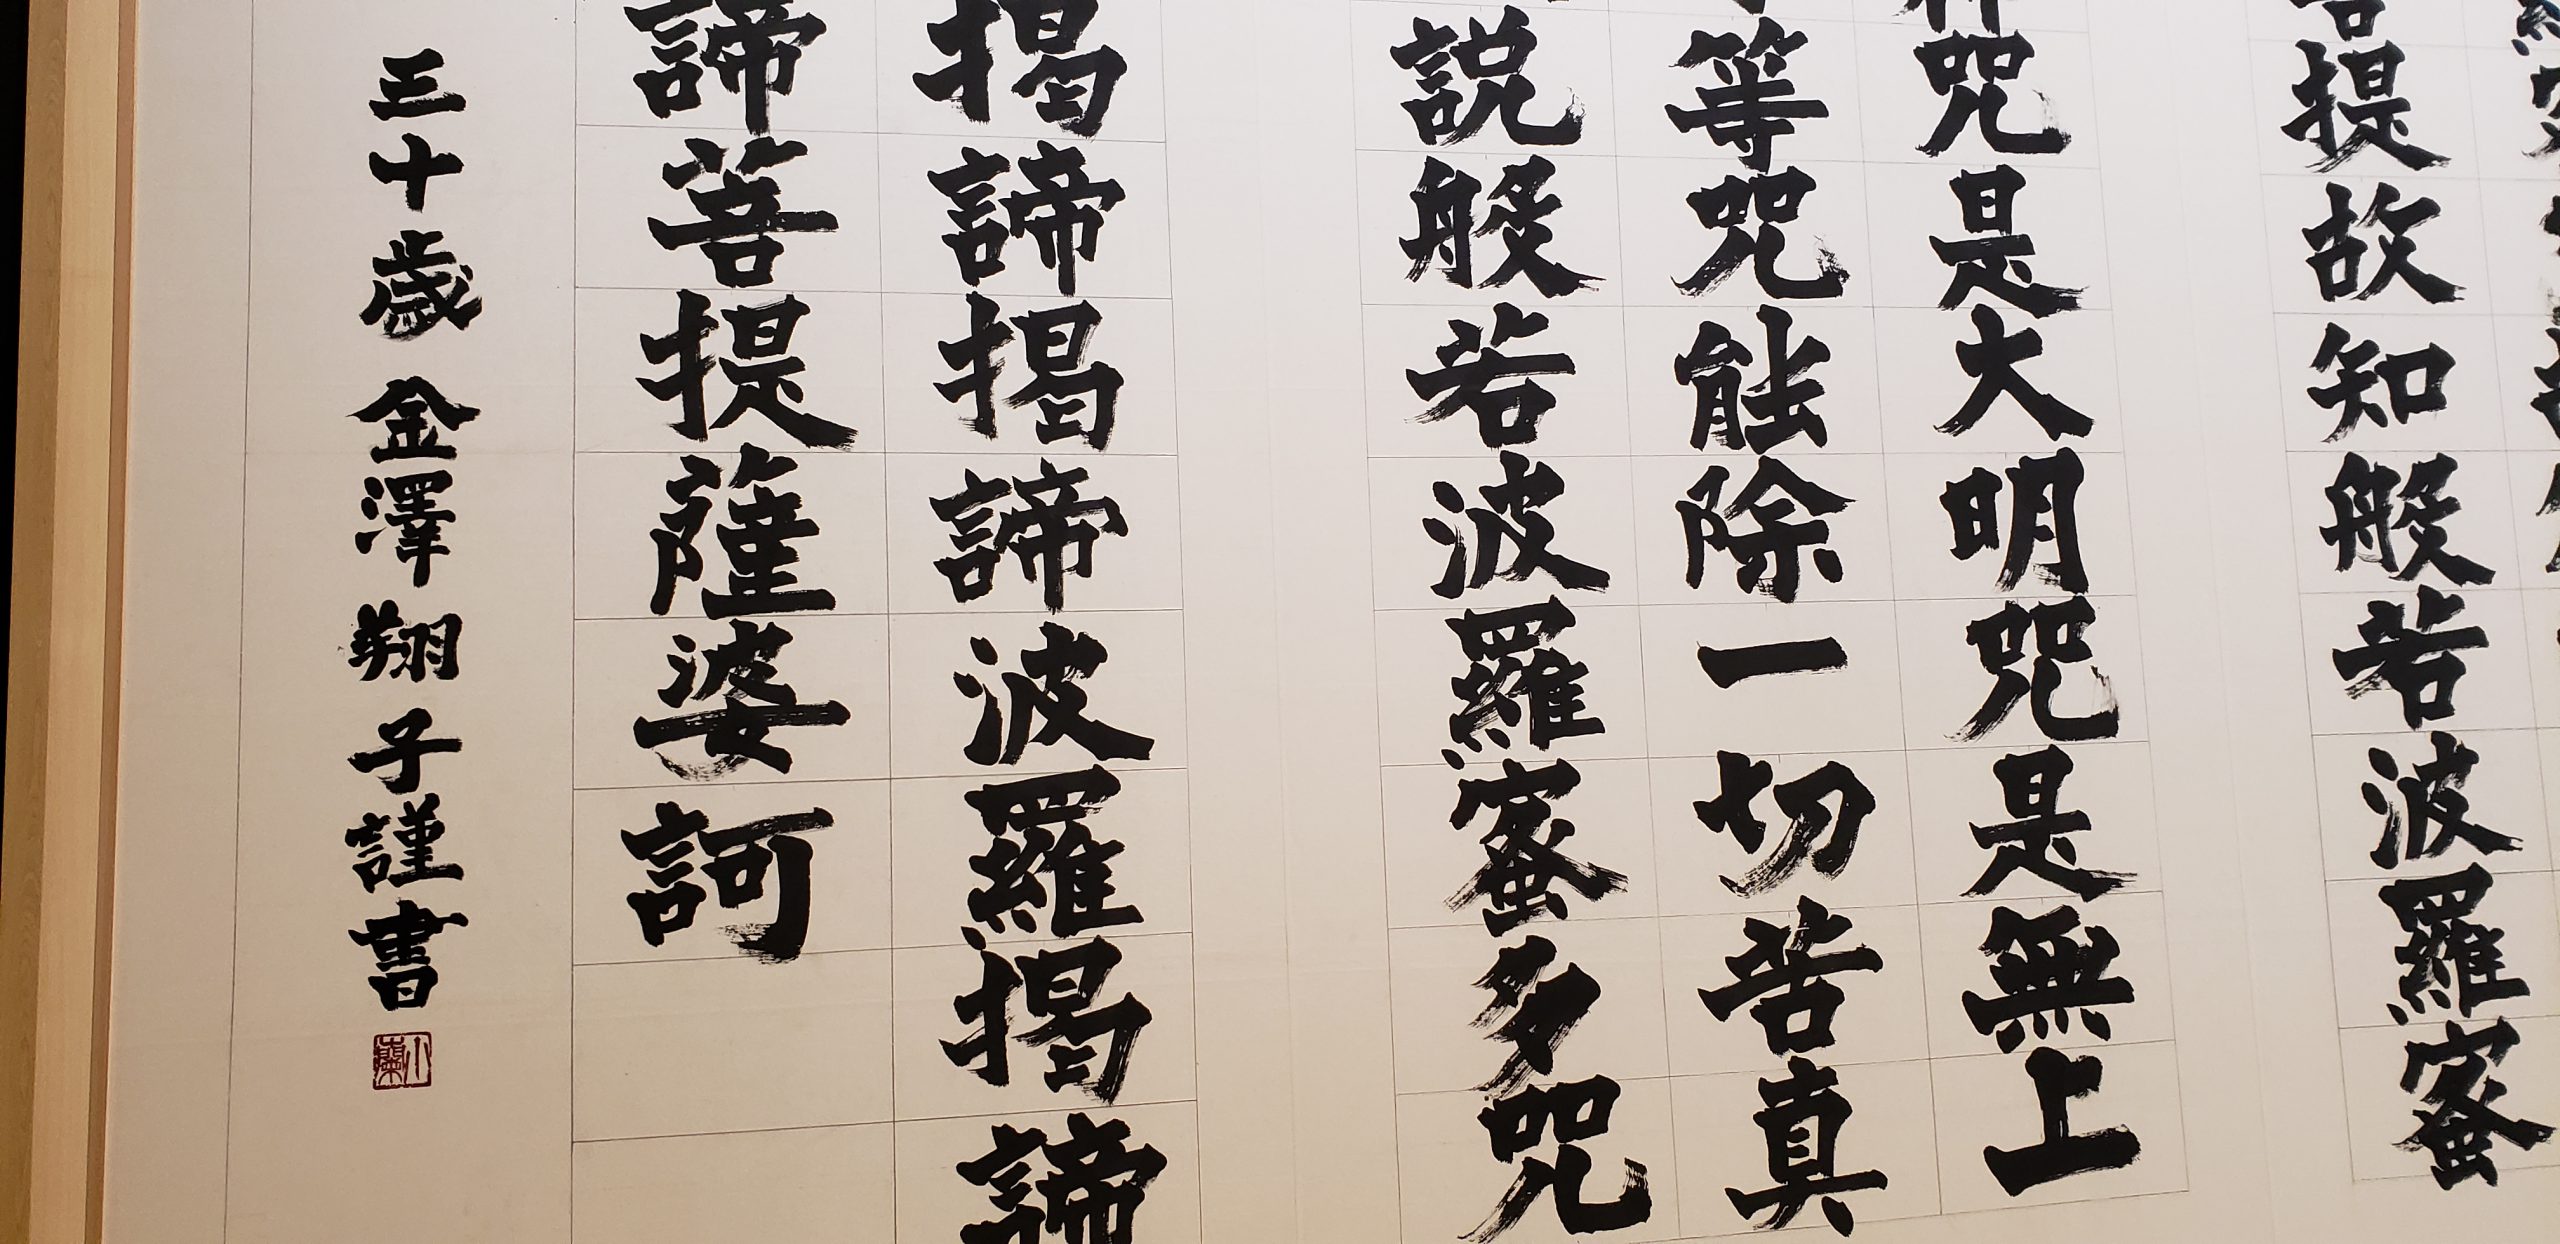 提故知般若波羅蜜
咒是大明咒是無上
等咒能除一切苦真
説般若波羅蜜多咒
揭諦揭諦波羅揭諦
諦菩提薩婆訶
三十歳 金澤翔子謹書
小蘭